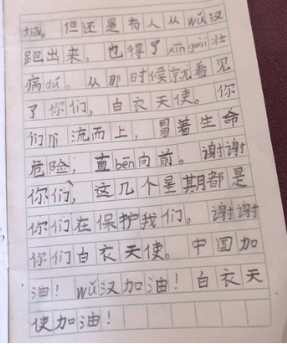 城。但还是有人从wǔ汉
跑出来，也得了xīn guān壮
病dú。从那时候就看见
了你们，白衣天使。你
们nì流而上，冒着生命
危险，直bēn向前。谢谢
你们，这几个星期都是
你们在保护我们。谢谢
你们白衣天使。中国加
油！wǔ汉加油！白衣天
使加油！